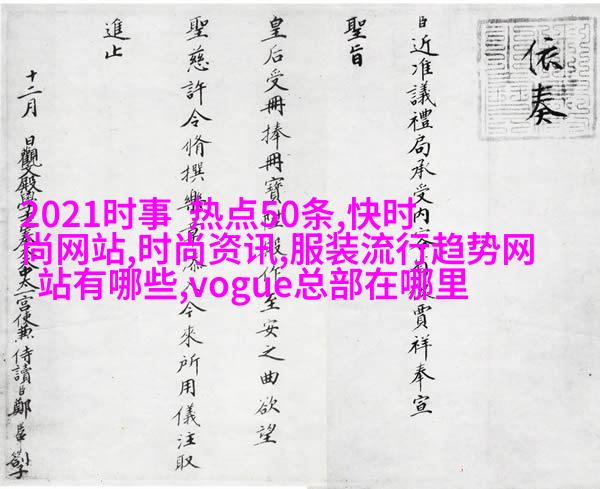 依奏
近准議禮局承受内賈祥奉宣
聖旨
皇后受冊捧冊寶作至安之曲欲望
聖慈許令脩撰樂入今來所用儀注取
進止
十二月 日觀文殿學士太一宮使兼侍讀臣鄭
2021时事 热点50条,快时
尚网站,时尚资讯,服装流行趋势网
站有哪些,vogue总部在哪里